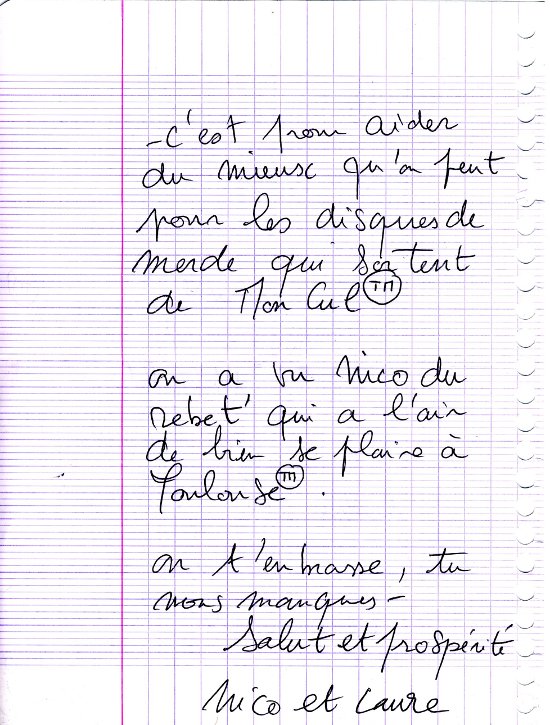 - c'est pour aider
du mieux qu'on peut
pour les disques de
merde qui sortent
de Mon Cul TM
on a vu Nico du
rebet' qui a l'air
de bien se plaire à
Toulouse TM.
on t'embrasse, tu
nous manques -
Salut et prospérité
Nico et Laure